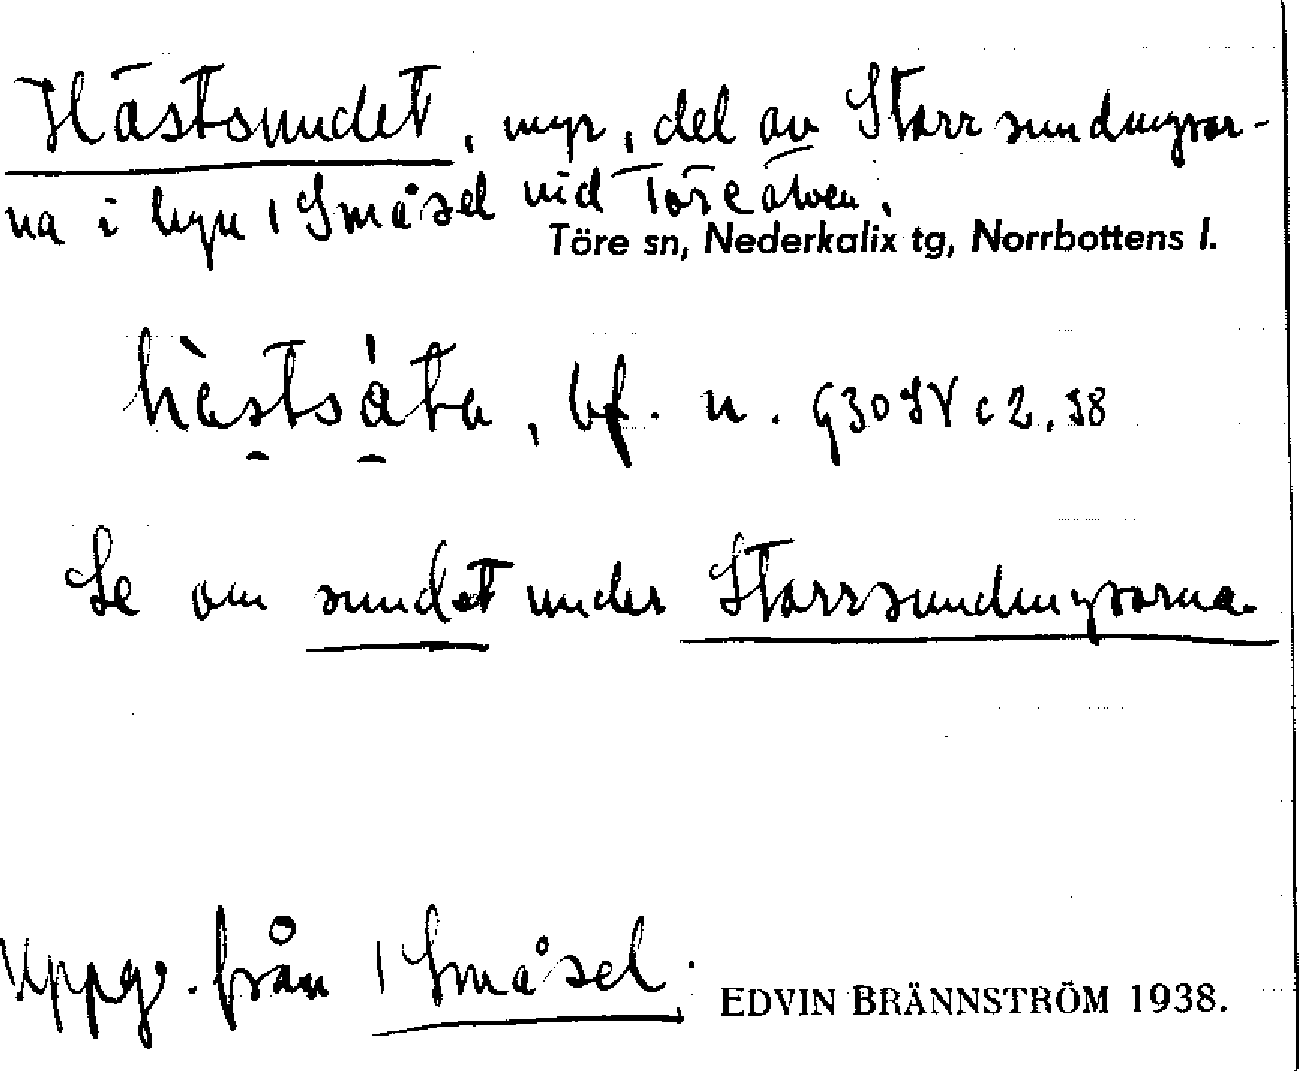 Hästsundet, myr, del av Starrsundmyrar-
na i byn 1 Småsel vid Töreälven.
Töre sn, Nederkalix tg, Norrbottens l.
hàstsáta, bf. n.
Se om sundet under Starrsundmyrarna.
Uppg. från 1 Småsel.
EDVIN BRÄNNSTRÖM 1938.